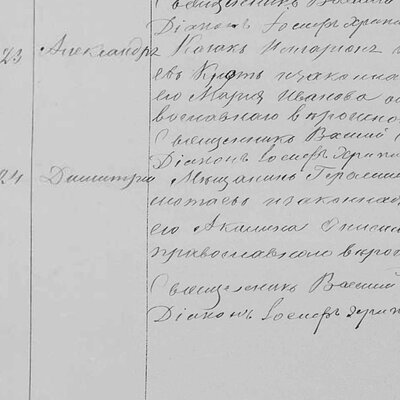 Священникъ Василій
Діаконъ Іосифъ Храп
23 Александръ Казакъ Иларіонъ
евъ Кротъ и законна
его Марія Иванова
вославнаго вѣроисп
Священникъ Василій
Діаконъ Іосифъ Храп
24 Димитрій Мѣщанинъ Герасим
евъ и законна
его Акилина
православнаго вѣрои
Священникъ Василій
Діаконъ Іосифъ Храп